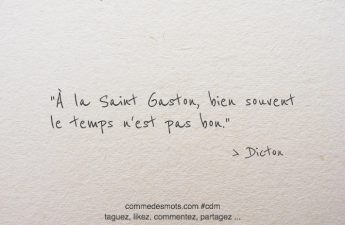 "À la Saint Gaston, bien souvent
le temps n'est pas bon."
> Dicton
commedesmots.com #cdm
taguez, likez, commentez, partagez ...